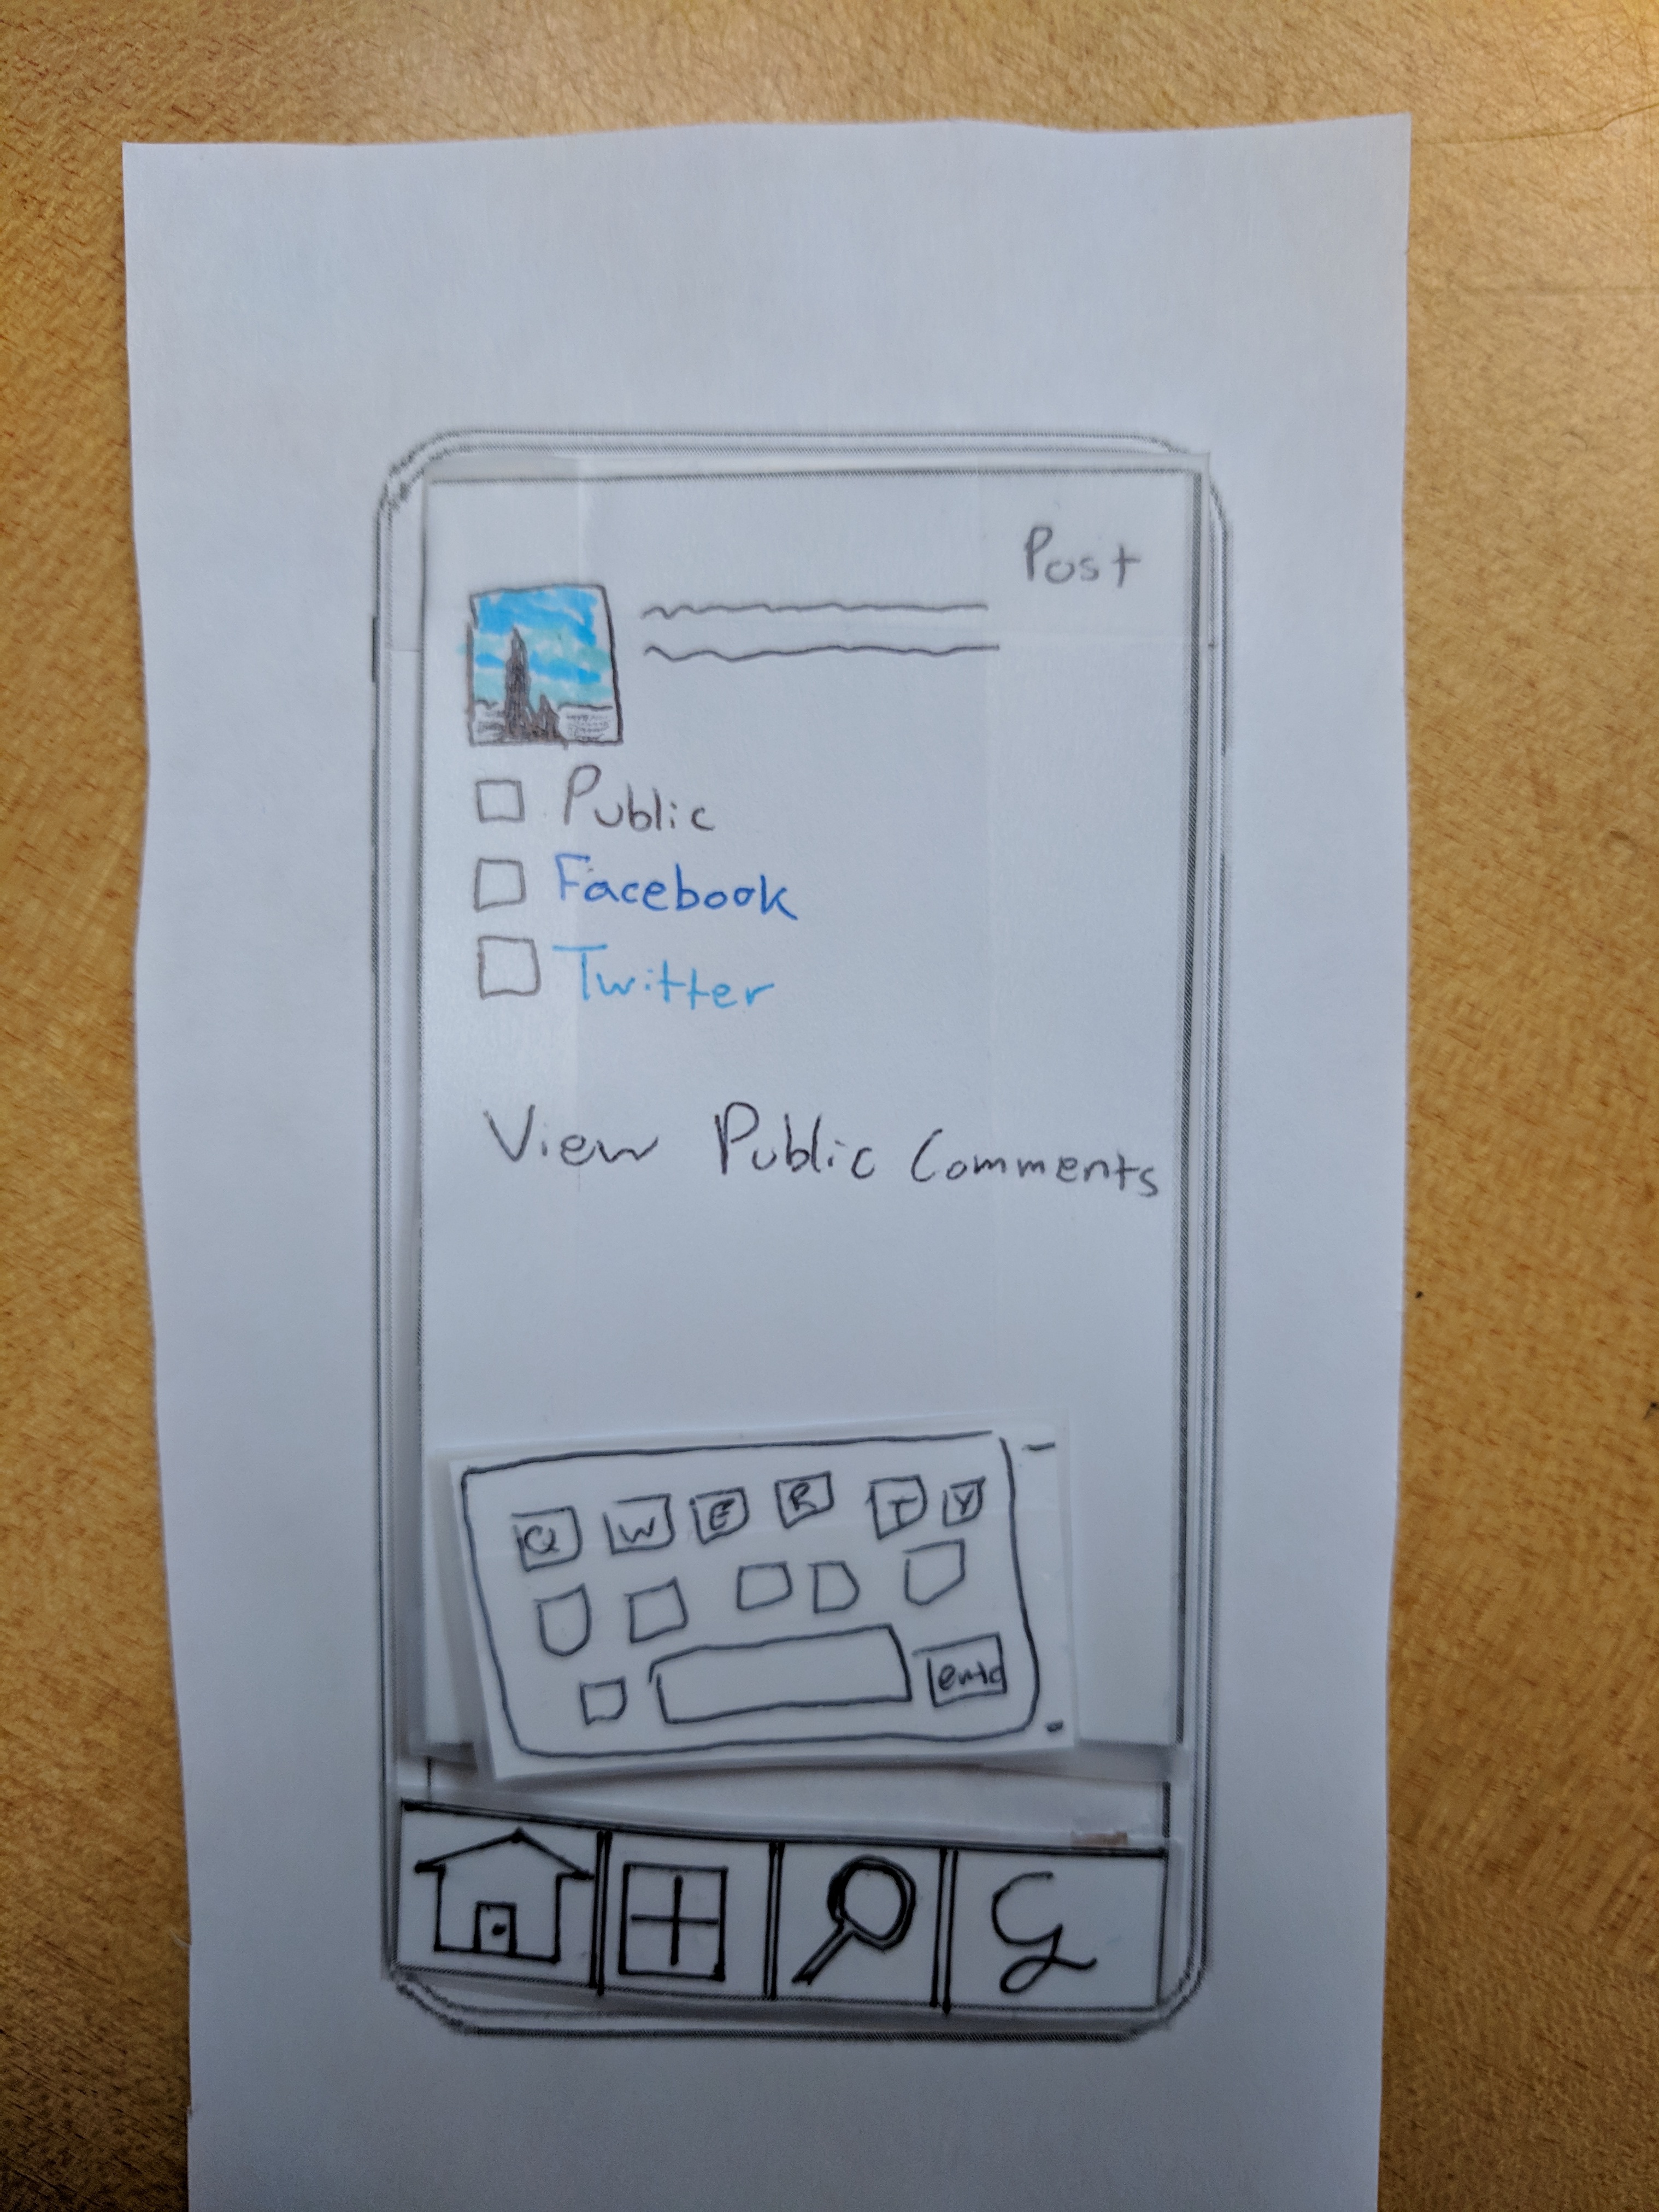 Post
Public
Facebook
Twitter
View Public Comments
Q W E R T Y
G